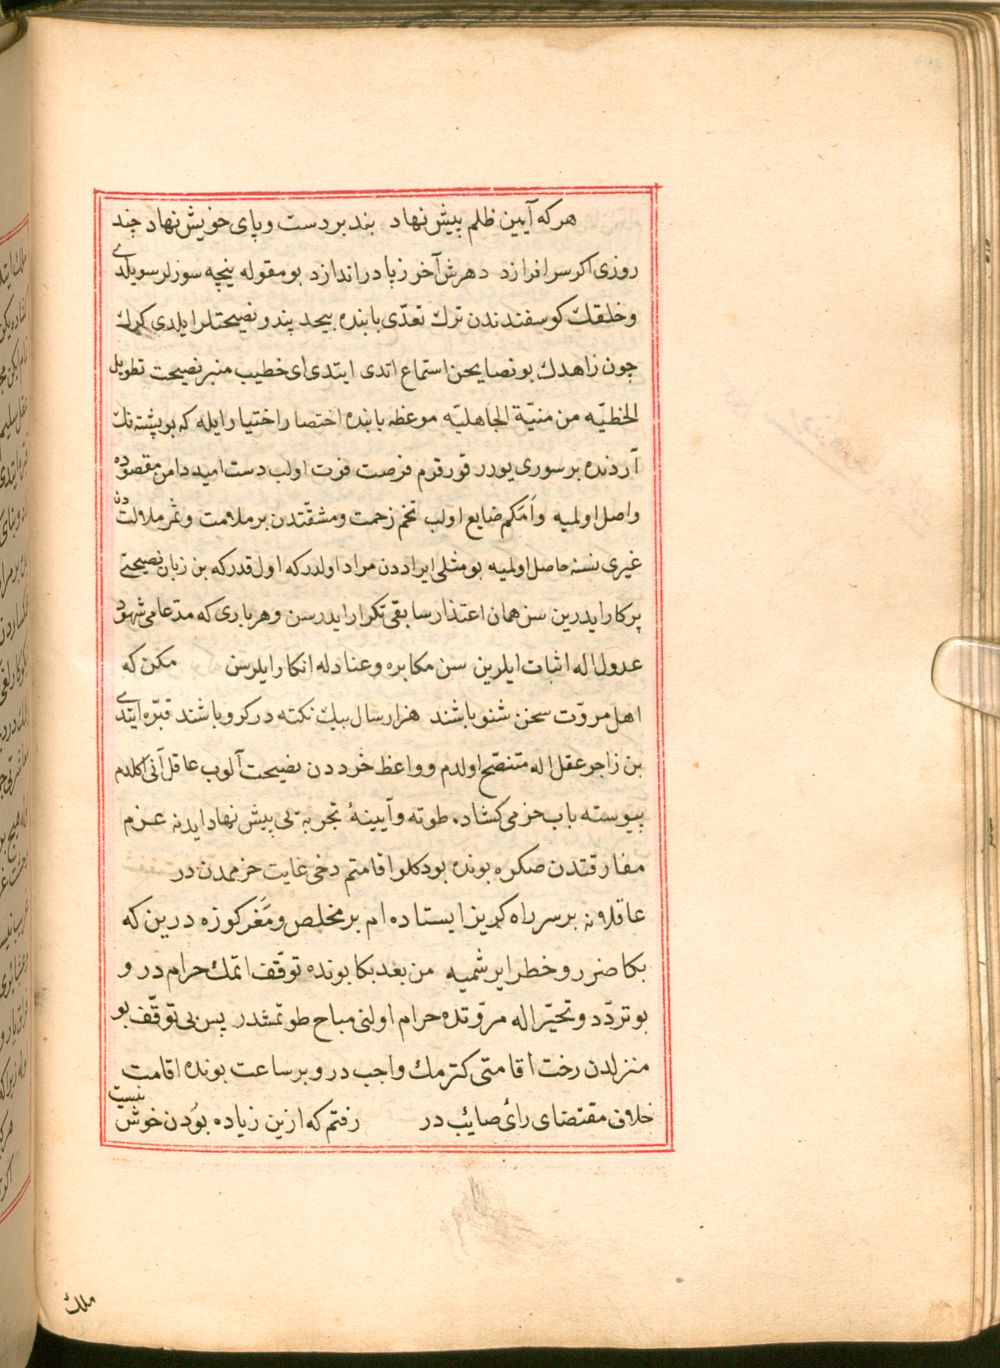 هرکه آیین ظلم پیش نهاد بند بر دست و پای خویش نهاد چند
روزی اکر سر افرازد دهرش آخر زپا دراندازد بو مقوله نیچه سوزلر سویلدی
و خلقك کوسفندندن ترك تعدّی بابنده بیحد پند و نصیحتلر ایلدی کرك
چون زاهدك بو نصایحن استماع اتدی ایتدی ای خطیب منبر نصیحت تطویل
الخطبّه من منیّة الجاهلیّه موعظه بابنده اختصار اختیار ایله که بو پشته نك
آردنده بر سوری یورر قورقرم فرصت فوت اولب دست امید دامن مقصوده
واصل اولمیه و اَمَکم ضایع اولب تخم زحمت و مشقّتدن بر ملامت و ثمر ملالتدن
غیری نسنه حاصل اولمیه بو مثلی ایراددن مراد اولدرکه اول قدرکه بن زبان نصیحتی
پرکار ایدرین سن همان اعتذار سابقی تکرار ایدرسن و هر باری که مدّعامی شهود
عدول اله اثبات ایلرین سن مکابره و عنادله انکار ایلرسن مکن که
اهل مروّت سخن شنو باشند هزار سال بیك نکته در کرو باشند قبّره ایتدی
بن زاجر عقل اله متنصّح اولدم و واعظ خرددن نصیحت آلوب عاقل آنی اکلدم
پیوسته باب حزمی کشاده طوته و آیینهٔ تجربه یی پیش نهاد ایدنه عزم
مفارقتدن صکره بونده بودکلو اقامتم دخی غایت حزممدن در
عاقلانه بر سر راه کریز ایستاده ام بر مخلص و مَفَر کوزه درین که
بکا ضرر و خطر ایرشمیه من بعد بکا بونده توقّف اتمك حرام در و
بو تردّد و تحیّر اله مروّتده حرام اولنی مباح طوتمشدر پس بی توقّف بو
منزلدن رخت اقامتی کترمك واجب در و بر ساعت بونده اقامت
خلاف مقتضای رای صایب در رفتم که ازین زیاده بُودن خوش نیست
ملك